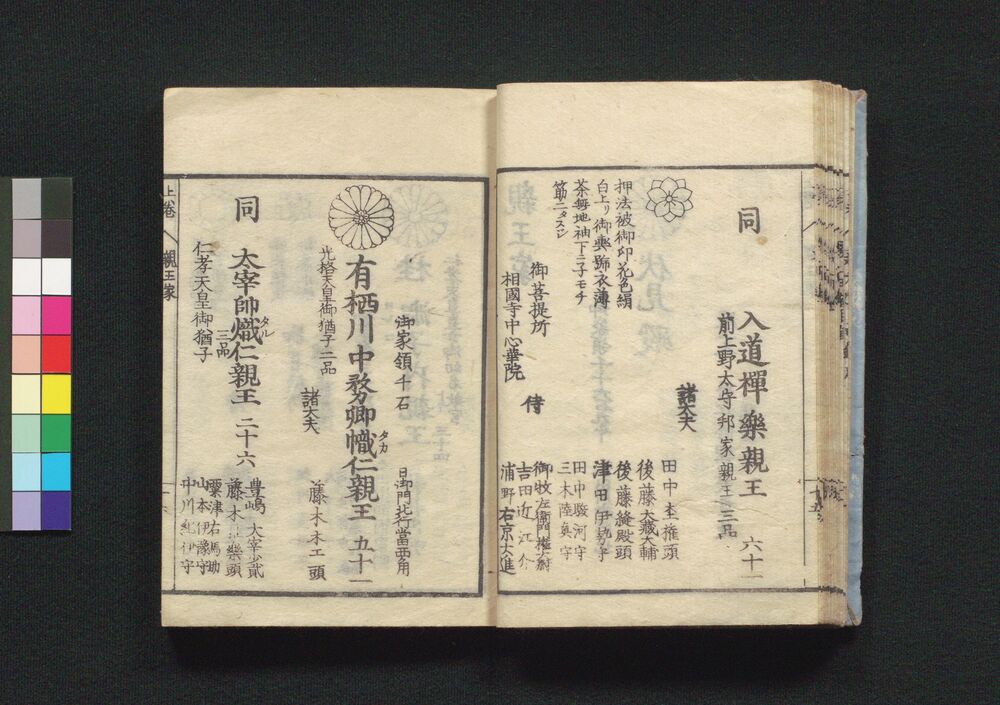 同
入道禅楽親王 六十一
前上野太守邦家親王 三品
諸大夫
田中木工権頭
後藤大蔵大輔
後藤縫殿頭
津田伊勢守
田中駿河守
三木陸奥守
押法被御印花色絹
白上リ御輿飾衣薄
茶無地袖下ニ子モチ
筋ニタスジ
御菩提所
相國寺中心華院
侍
御牧左衛門権大尉
吉田近江介
浦野右京大進
御家領千石
日御門北行當西角
有栖川中務卿幟仁親王 五十一
タカ
光格天皇御猶子二品
諸大夫
藤木木工頭
同
太宰帥熾仁親王 二十六
タル
三品
仁孝天皇御猶子
豊嶋太宰少貳
藤木雅楽頭
粟津右馬助
山本伊豫守
中川紀伊守
上巻
親王家